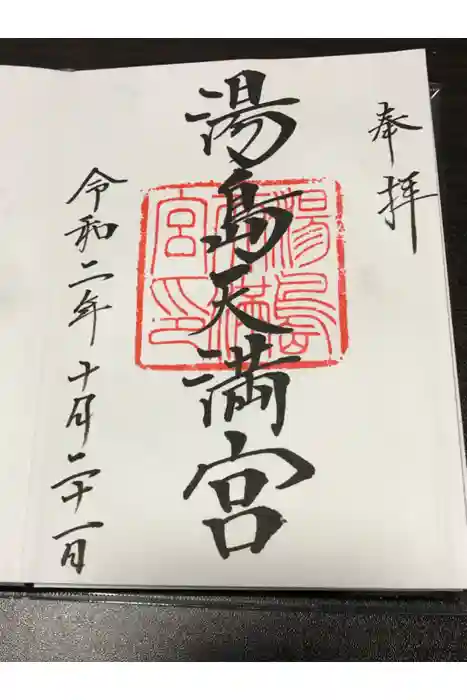 奉拝
湯島天満宮
湯島
天満
宮印
令和二年十月二十一日